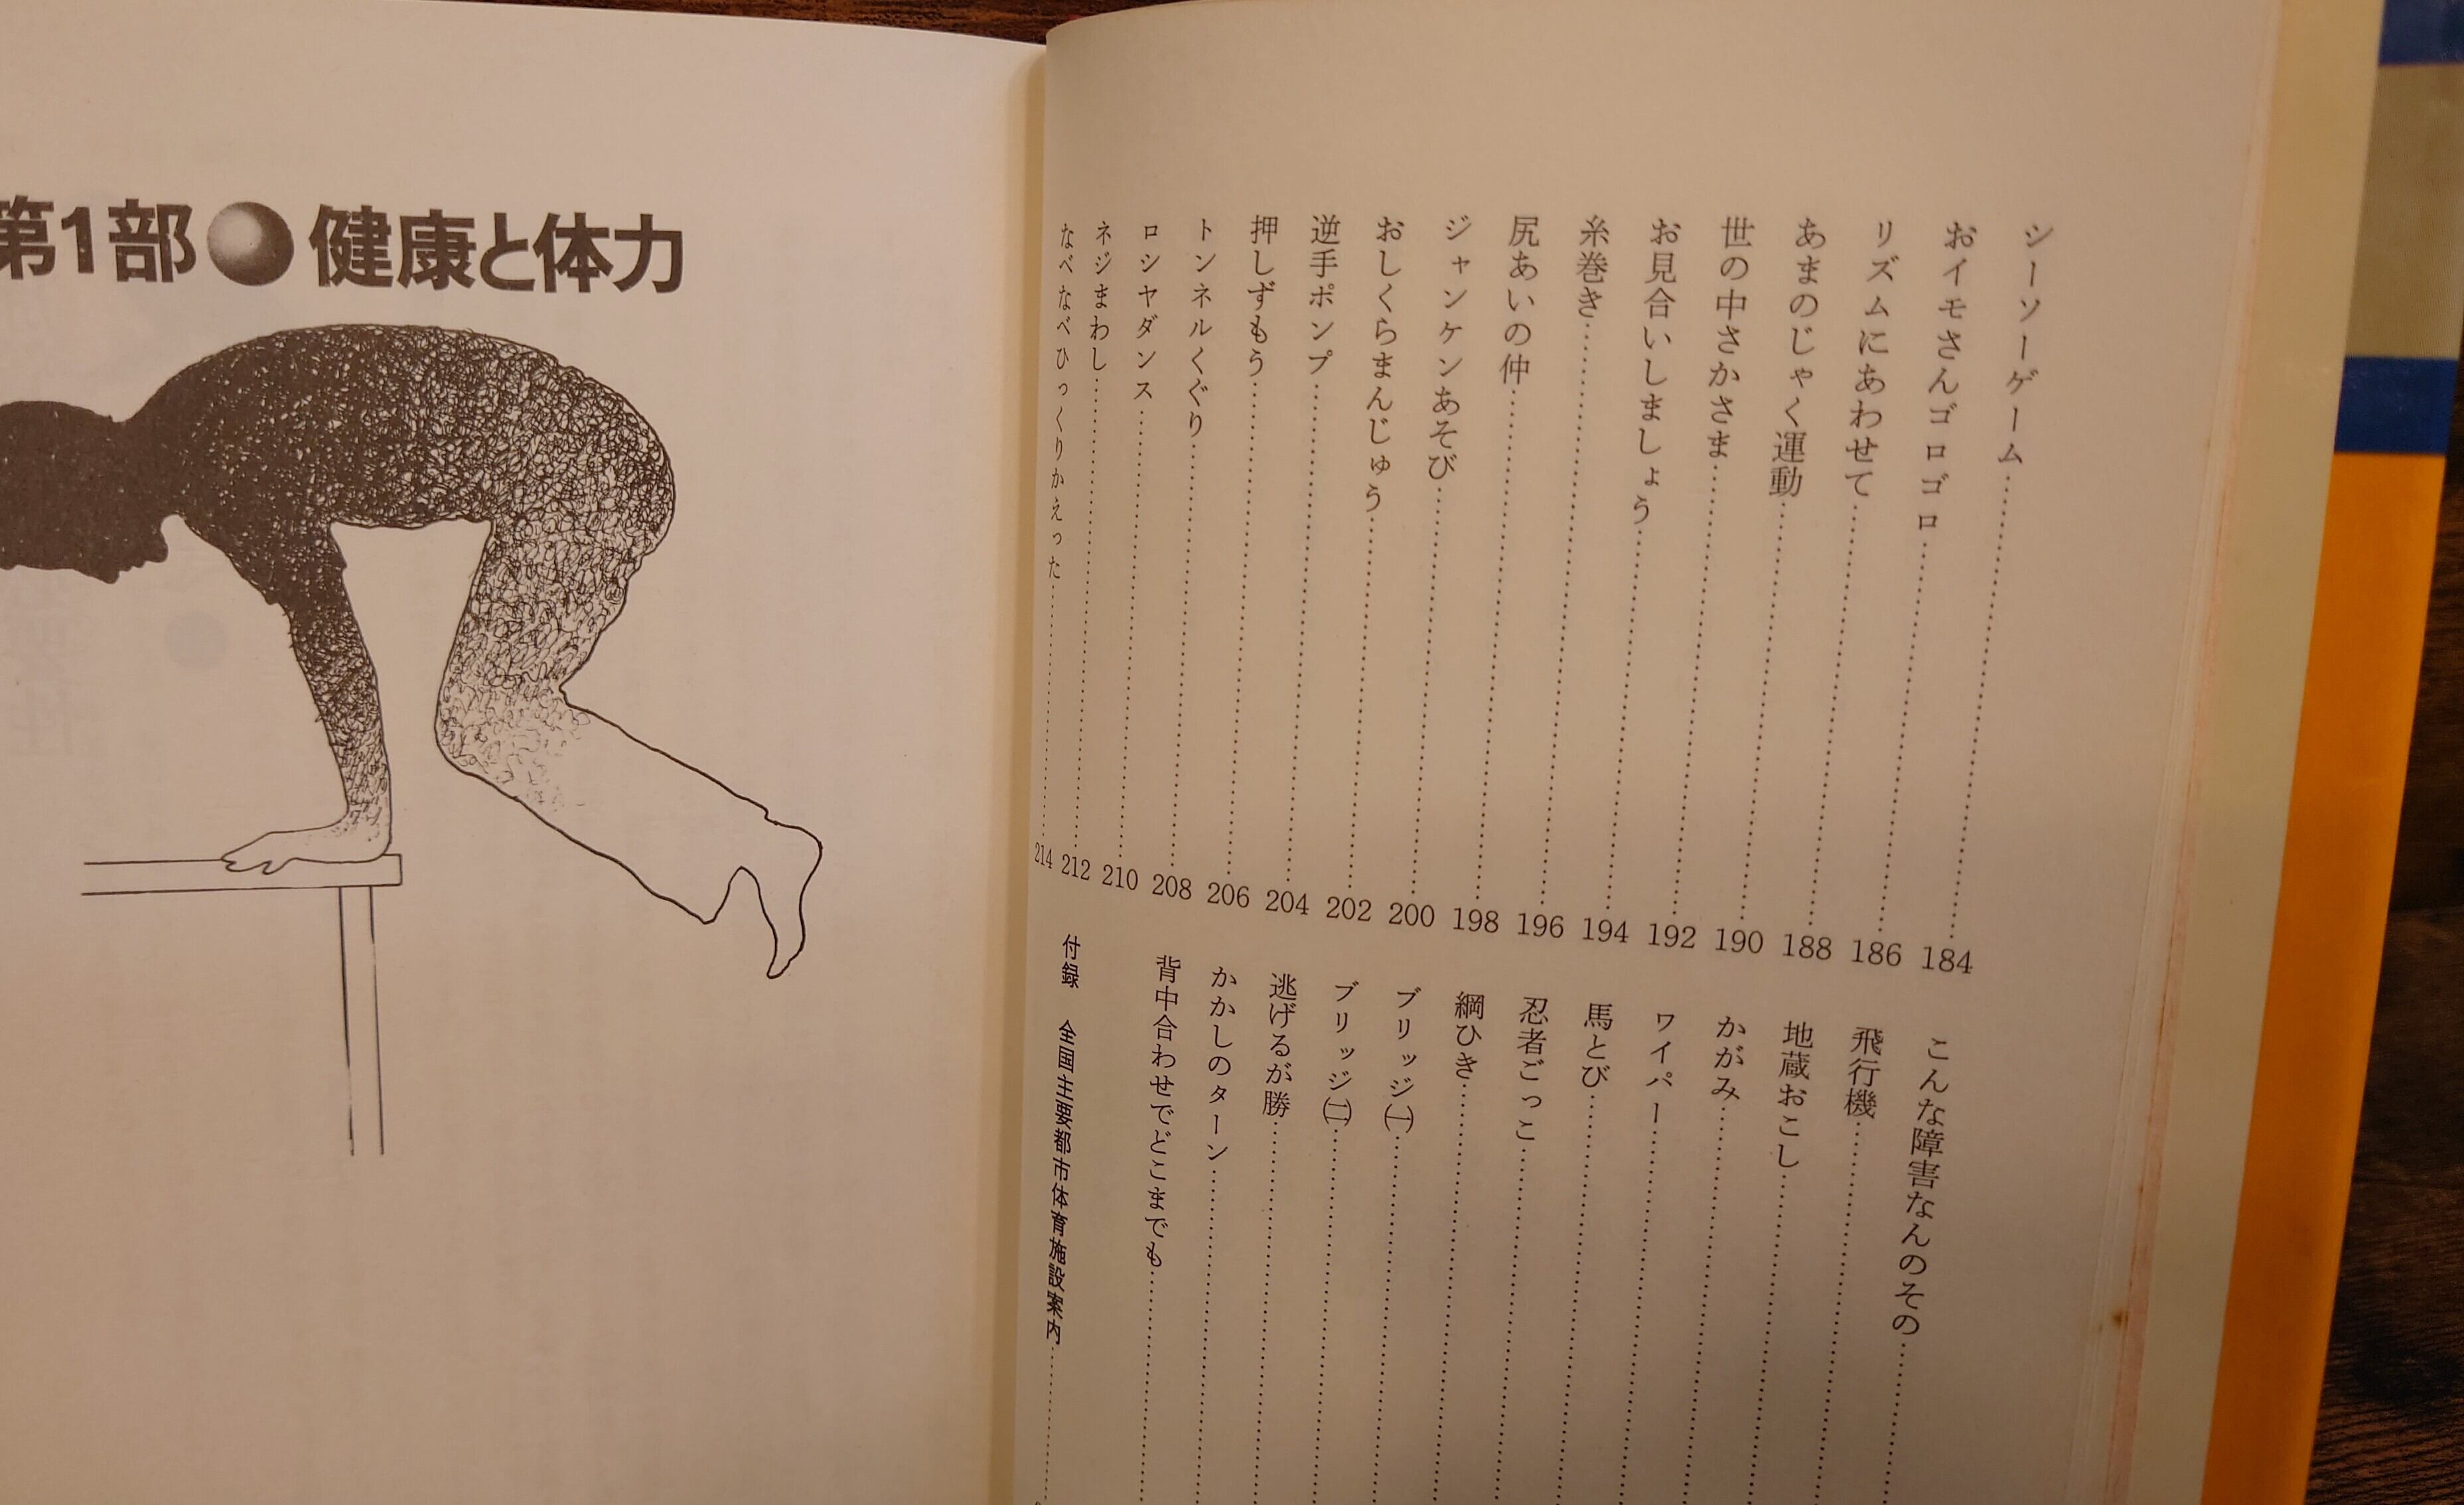 シーソーゲーム……184
おイモさんゴロゴロ……186
リズムにあわせて……188
あまのじゃく運動……190
世の中さかさま……192
お見合いしましょう……194
糸巻き……196
尻あいの仲……198
ジャンケンあそび……200
おしくらまんじゅう……202
逆手ポンプ……204
押しずもう……206
トンネルくぐり……208
ロシヤダンス……210
ネジまわし……212
なべなべひっくりかえった……214
こんな障害なんのその……
飛行機……
地蔵おこし……
かがみ……
ワイパー……
馬とび……
忍者ごっこ……
綱ひき……
ブリッジ(一)……
ブリッジ(二)……
逃げるが勝……
かかしのターン……
背中合わせでどこまでも……
付録 全国主要都市体育施設案内……
第1部●健康と体力